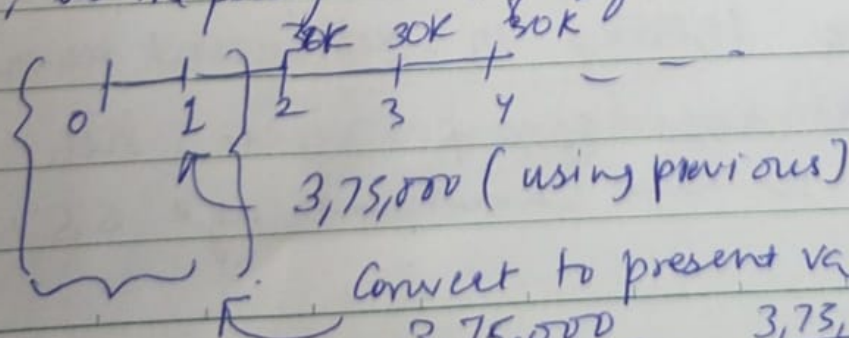 30K 30K 30K
0 1 2 3 4
3,75,000 (using previous)
Convert to present va
3,75,